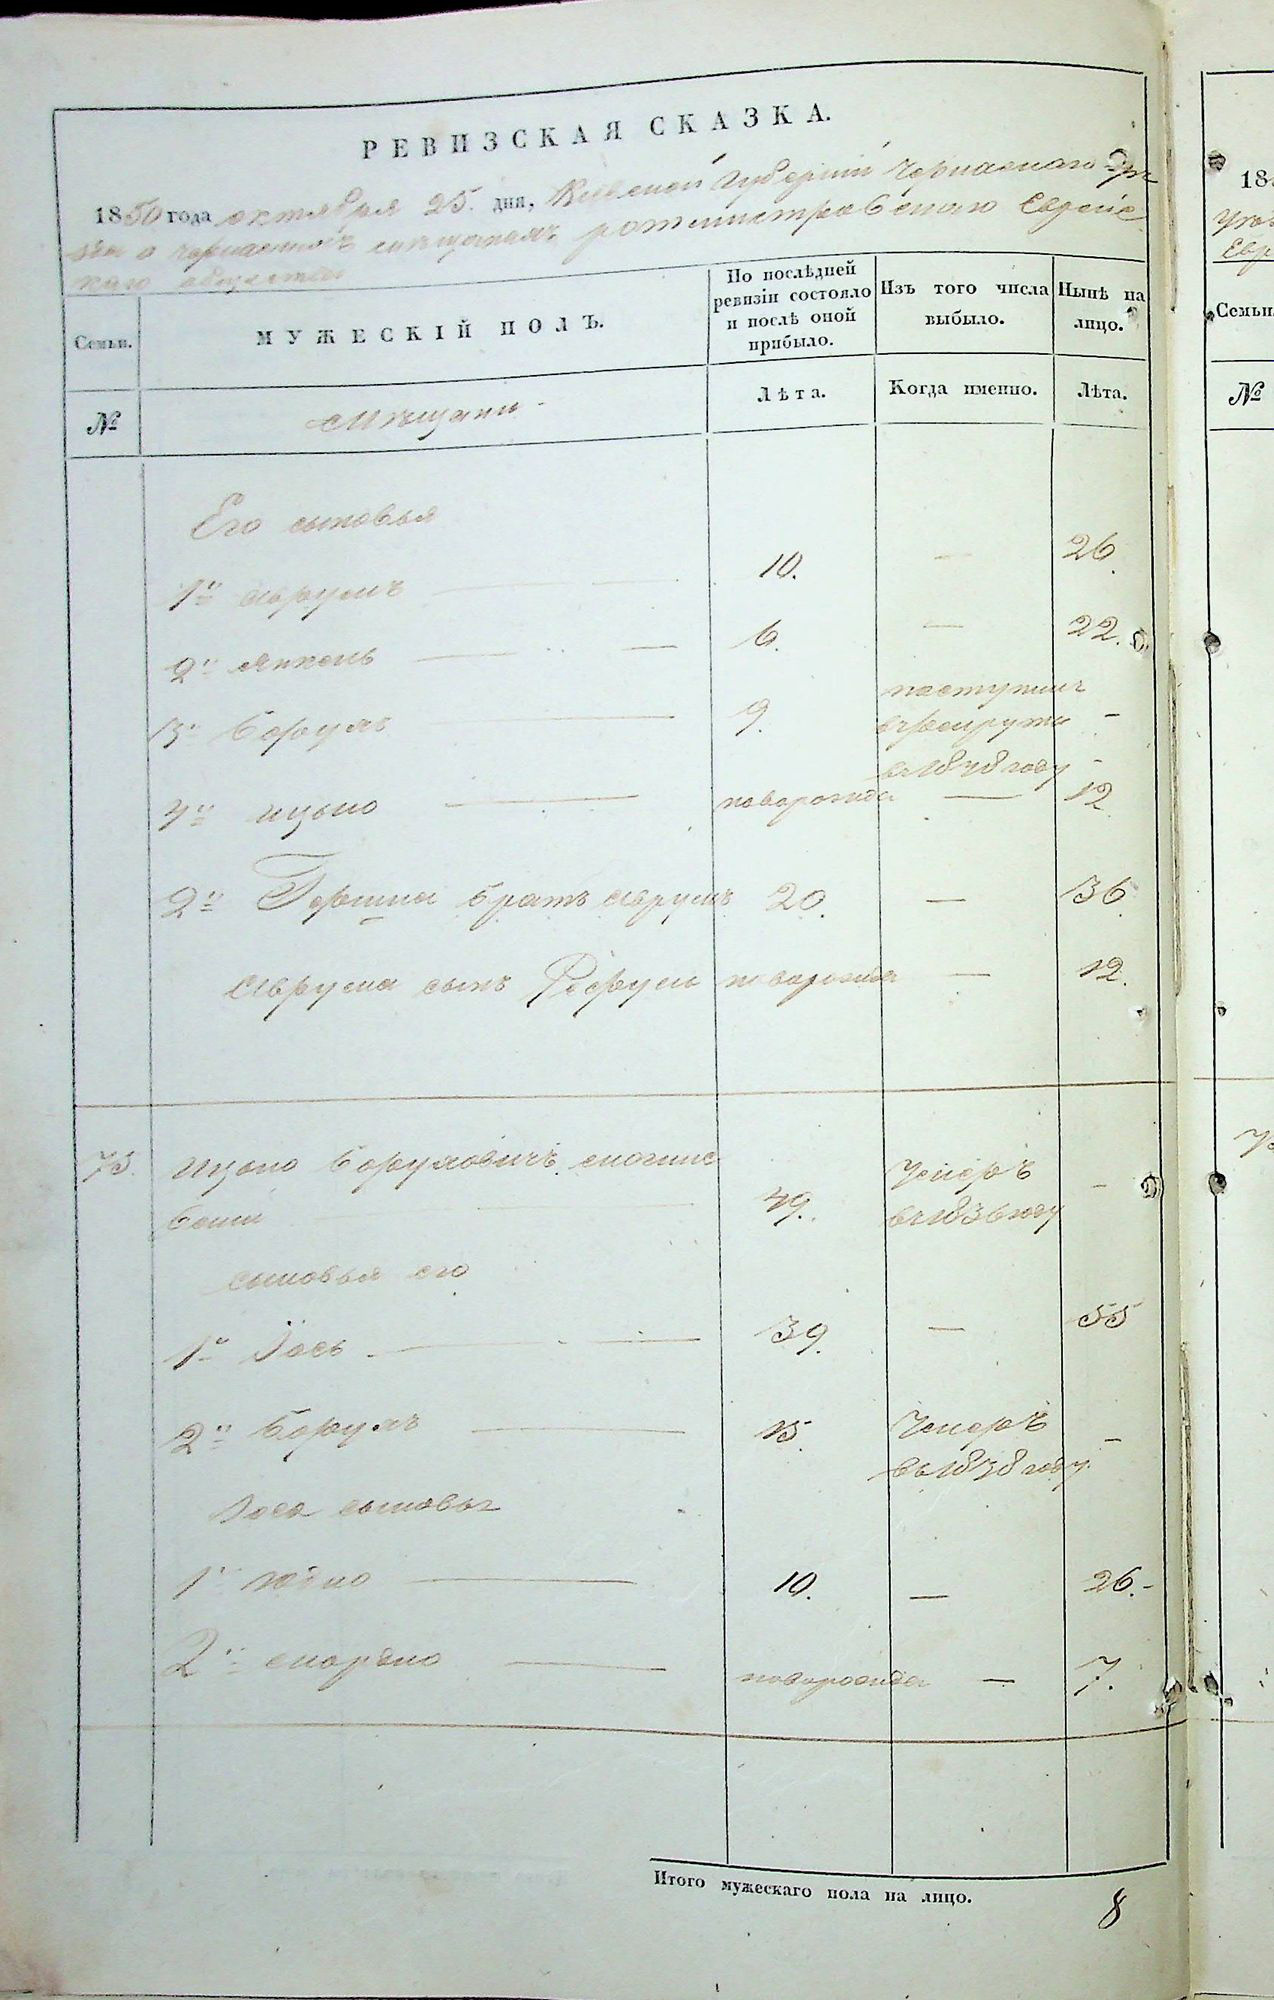 РЕВИЗСКАЯ СКАЗКА.
1850 года октября 25 дня, Киевской губернии Черкаскаго уѣ
зда о мѣщанахъ Ротмистровскаго Еврейс
каго общества
Семьи.
МУЖЕСКІЙ ПОЛЪ.
По послѣдней ревизіи состояло и послѣ оной прибыло.
Изъ того числа выбыло.
Нынѣ на лицо.
№
Мѣщани
Лѣта.
Когда именно.
Лѣта.
Его сыновья
1й Аврумъ 10. — 26.
2й Янкель 6. — 22.
3й Борухъ 9. поступилъ
в рекруты —
в 1848 году
4й Ицько новорожде — 12
2й Гершка братъ Аврумъ 20. — 36
Аврума сынъ новорожде — 12.
75. Ицько Боруховичъ 49. Умеръ —
в 1836 году
сыновья его
1й Іось 39. — 55
2й Борухъ 15. Умеръ —
въ 1848 году
Іося сыновья
1й 10. — 26.
2й новорожде — 7.
Итого мужескаго пола на лицо. 8
18
Евр
Семьи.
№